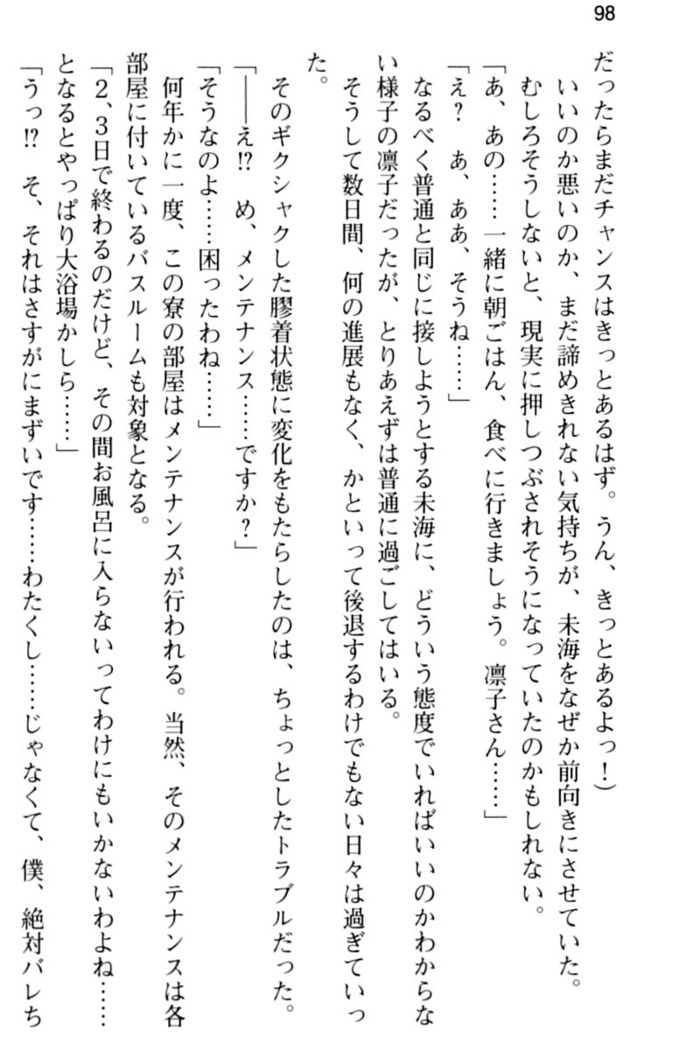 98
だったらまだチャンスはきっとあるはず。うん、きっとあるよっ！）
　いいのか悪いのか、まだ諦めきれない気持ちが、未海をなぜか前向きにさせていた。
　むしろそうしないと、現実に押しつぶされそうになっていたのかもしれない。
「あ、あの……一緒に朝ごはん、食べに行きましょう。凛子さん……」
「え？　あ、ああ、そうね……」
　なるべく普通と同じに接しようとする未海に、どういう態度でいればいいのかわからな
い様子の凛子だったが、とりあえずは普通に過ごしてはいる。
　そうして数日間、何の進展もなく、かといって後退するわけでもない日々は過ぎていっ
た。
　そのギクシャクした膠着状態に変化をもたらしたのは、ちょっとしたトラブルだった。
「――え!?　め、メンテナンス……ですか？」
「そうなのよ……困ったわね……」
　何年かに一度、この寮の部屋はメンテナンスが行われる。当然、そのメンテナンスは各
部屋に付いているバスルームも対象となる。
「２、３日で終わるのだけど、その間お風呂に入らないってわけにもいかないわよね……
となるとやっぱり大浴場かしら……」
「うっ!?　そ、それはさすがにまずいです……わたくし……じゃなくて、僕、絶対バレち